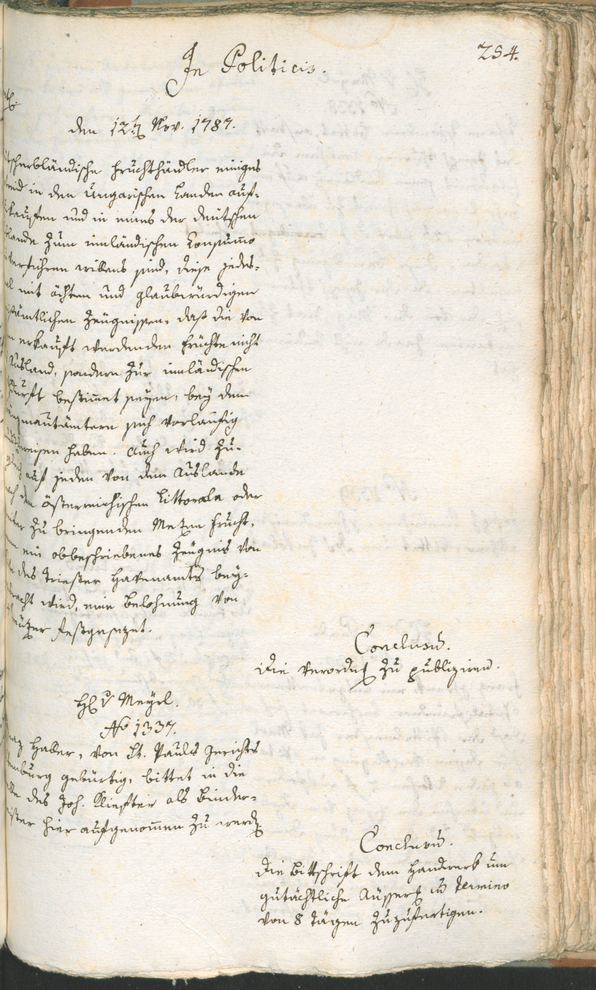 In Politicis.
254.
den 12t Nov. 1787.
erbländische Fruchthändler einiges
in den Ungarischen Landen auf-
kauffen und in eines der deutschen
lande zum inländischen Consumo
verführen willens sind, diese jedes-
mit ächten und glaubwürdigen
ämtlichen Zeugnissen, daß die von
erkauft werdenden Früchte nicht
Ausland, sondern zur inländischen
bestimmet seyen, bey dem
mautämtern sich vorläufig
haben. Auch wird zu-
auf jeden von dem Auslande
österreichischen Littorale oder
zu bringenden Metzen Frucht,
ein obbeschriebenes Zeugnis von
des Triester Hafenamts bey-
wird, eine Belohnung von
festgesezet.
Conclusū.
Die Verordng zu publiziren.
H v Meyrl.
No 1337.
Haber, von St. Pauls Gerichts
gebürtig, bittet in die
des Joh. als Binder-
hier aufgenommen zu werdē
Conclusū.
Die Bittschrift dem Handwerk um
gutächtliche Äusserg in Termino
von 8 Tägen zuzufertigen.